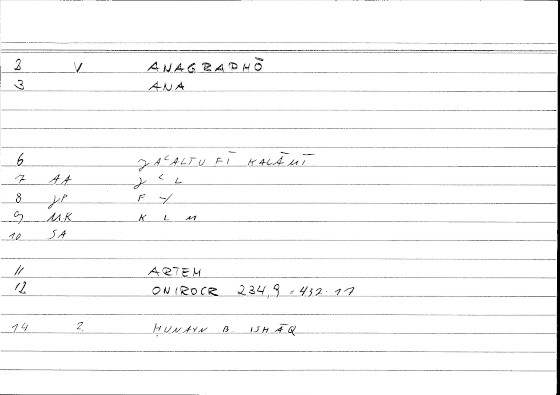 2 V ANAGRAPHŌ
3 ANA
6 ǧAʿALTU FĪ KALĀMĪ
7 AA ǧ ʿ L
8 ǧP F Y
9 MK K L M
10 SA
11 ARTEM
12 ONIROCR 234,9 = 432.11
14 2 ḤUNAYN B. ISḤĀQ